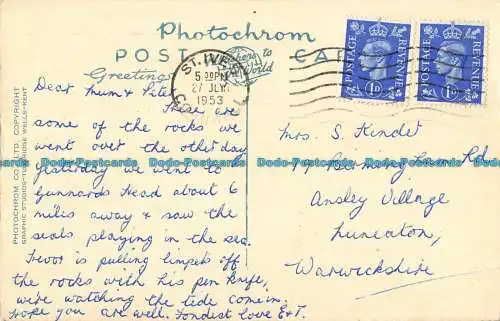 Photochrom
POST CARD
Greetings
ST. IVES
5 30 PM
27 JLY
1953
POSTAGE REVENUE
1D
POSTAGE REVENUE
1D
PHOTOCHROM CO., LTD., COPYRIGHT
GRAPHIC STUDIOS TUNBRIDGE WELLS KENT
Dear Mum &
These are
some of the rocks we
went over the other day
yesterday we went to
Gunnards Head about 6
miles away & saw the
seals playing in the sea.
Trevor is pulling limpets off
the rocks with his pen knife,
we're watching the tide come in.
hope you are well. Fondest Love E&T.
Mrs. S. Kinder
Ansley Village
Nuneaton,
Warwickshire
Dodo-Postcards Dodo-Postcards Dodo-Postcards Dodo-Postcards